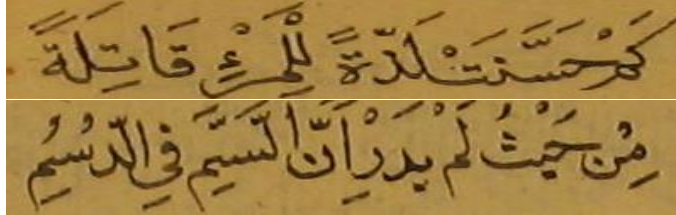 كَمْ حَسَّنَتْ لَذَّةً لِلْمَرْءِ قَاتِلَةً
مِنْ حَيْثُ لَمْ يَدْرِ اَنَّ السَّمَّ فِي الدَّسَمِ